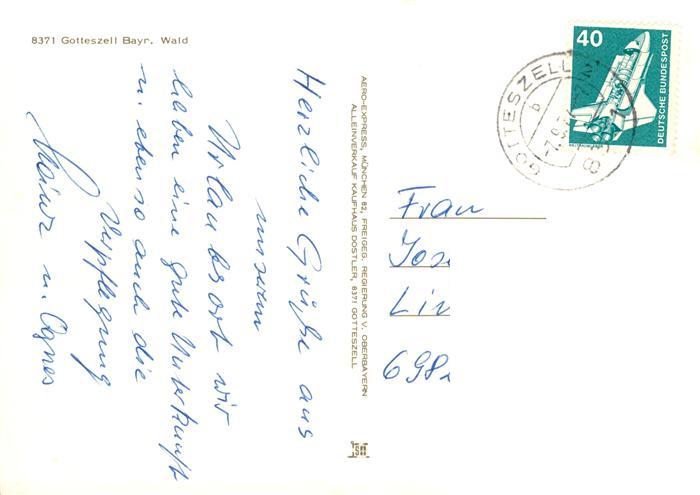 8371 Gotteszell Bayr. Wald
Herzliche Grüße aus
unserem
Urlaubsort wir
haben eine gute Unterkunft
u. ebenso auch die
Verpflegung
Heinz u. Agnes
AERO-EXPRESS, MÜNCHEN 82, FREIGEG. REGIERUNG V. OBERBAYERN
ALLEINVERKAUF KAUFHAUS DOSTLER, 8371 GOTTESZELL
40
DEUTSCHE BUNDESPOST
GOTTESZELL
b
Frau
Jos
Lin
698